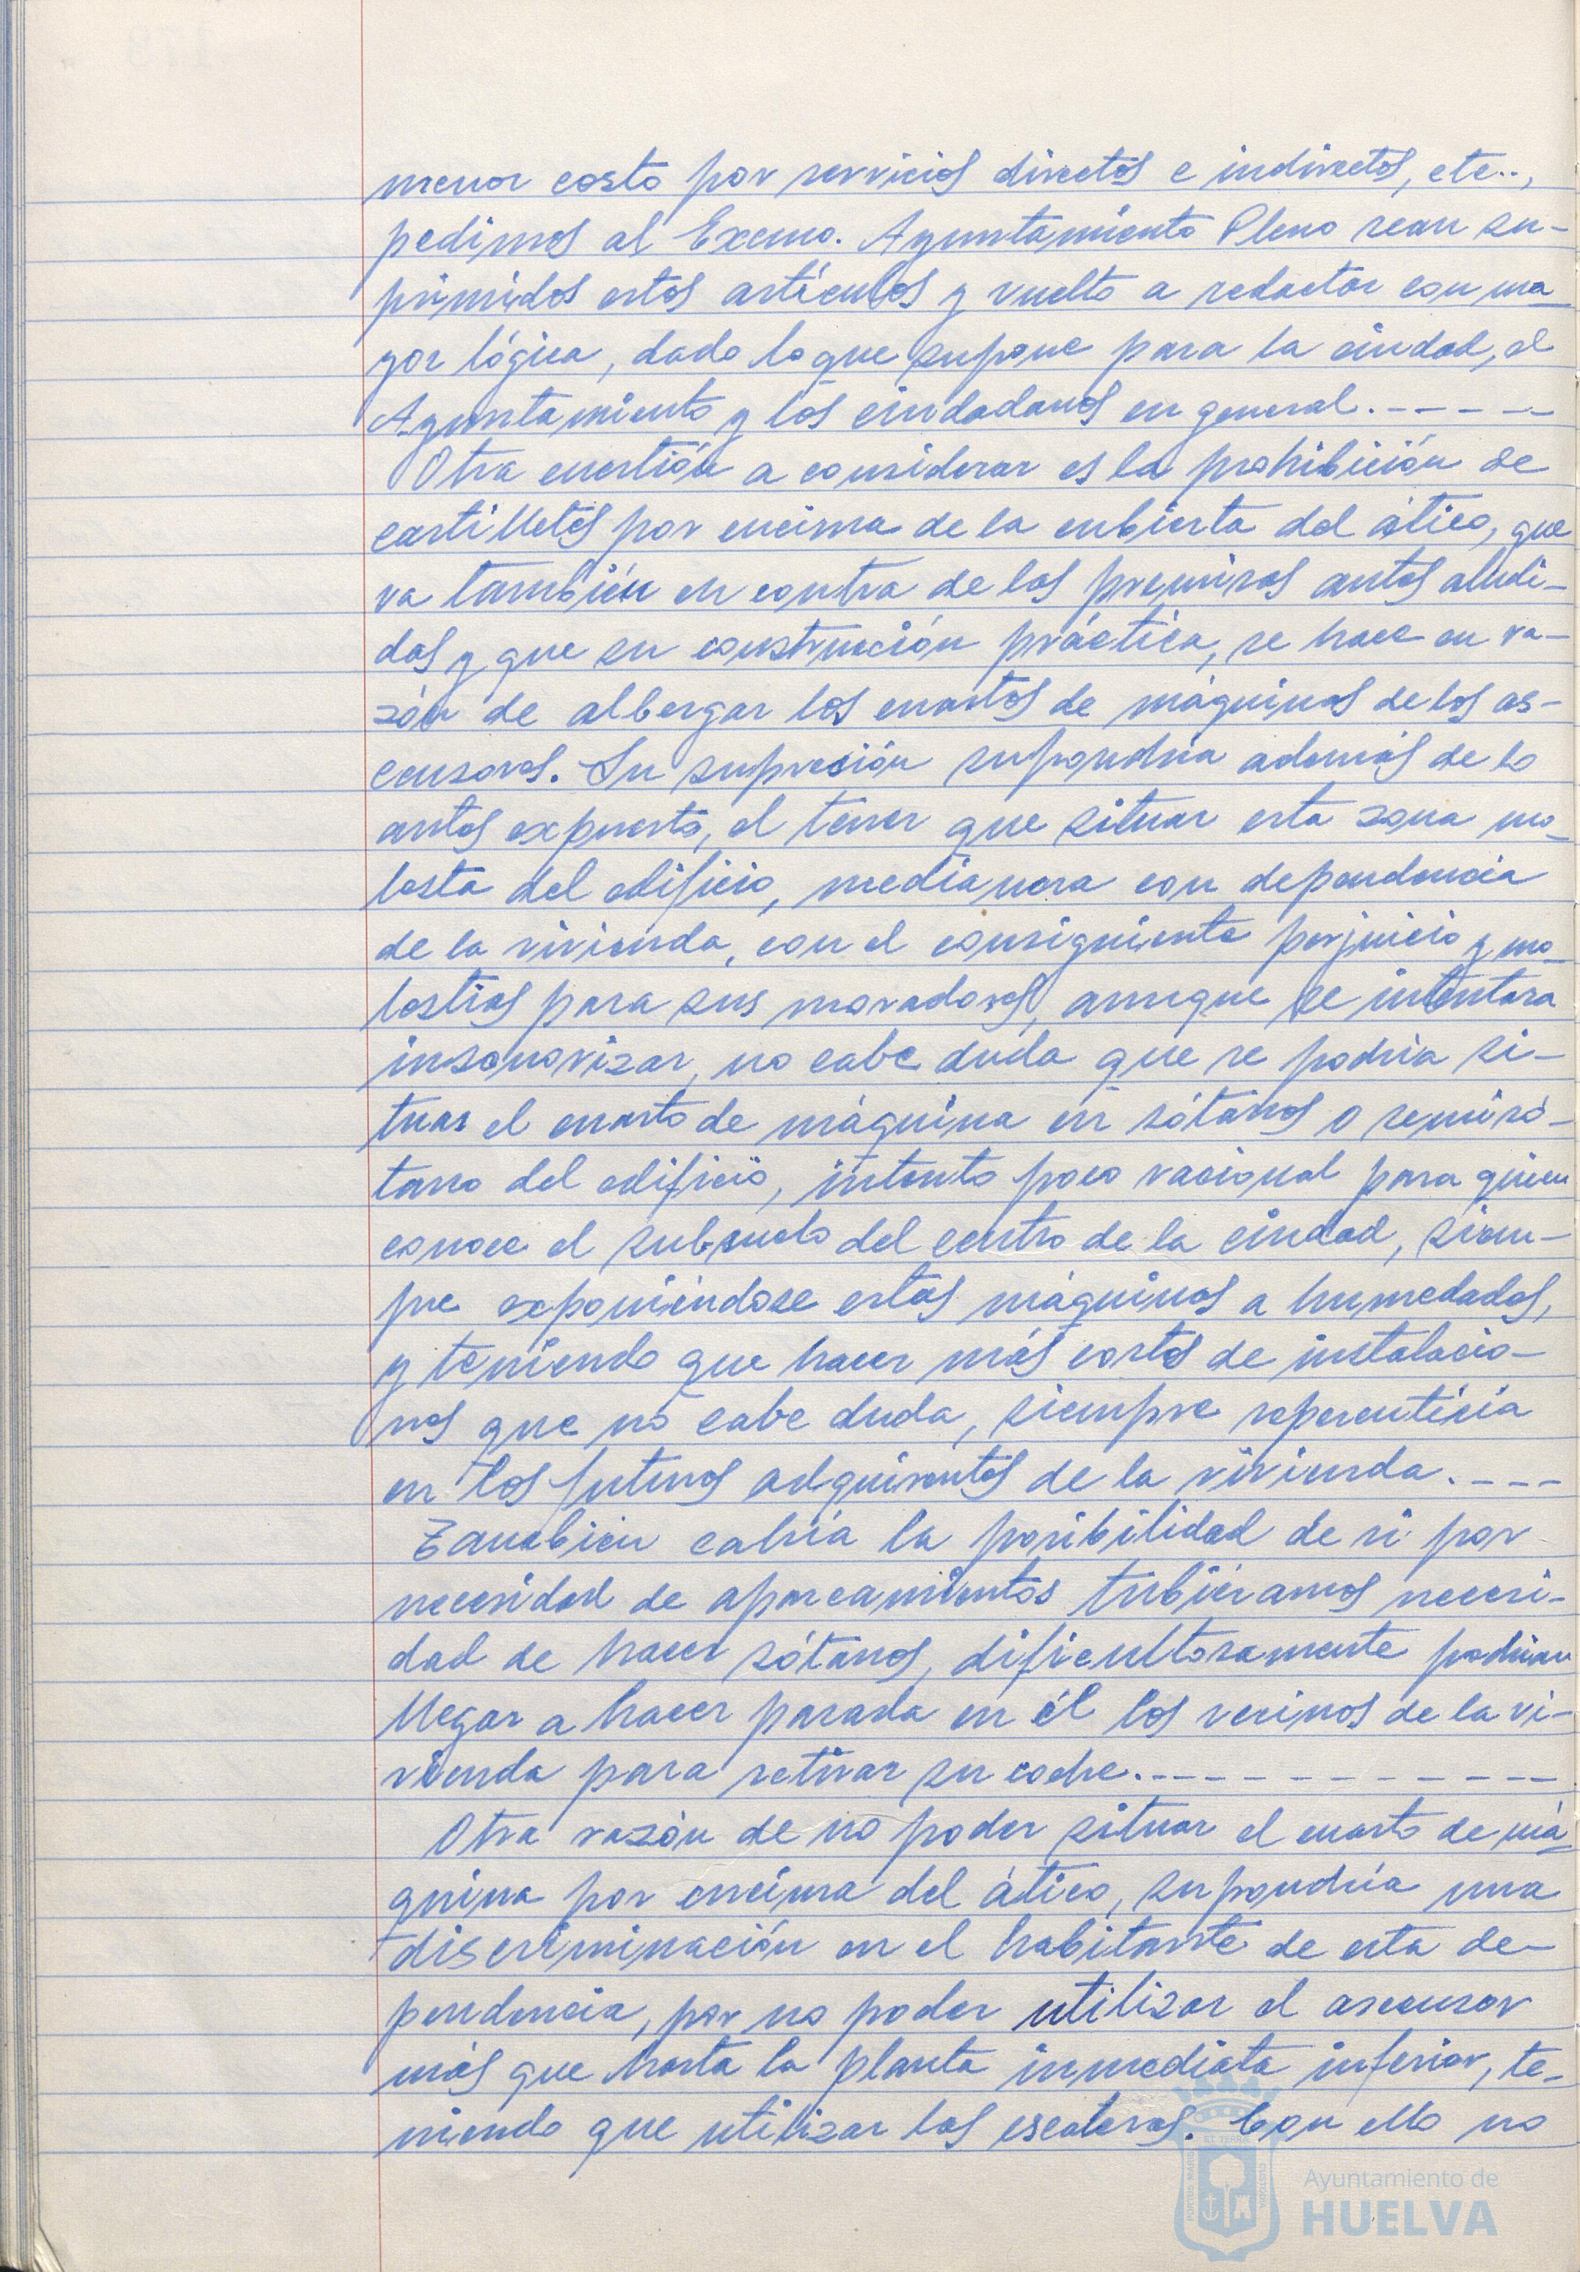 menor costo por servicios directos e indirectos, etc..,
pedimos al Excmo. Ayuntamiento Pleno sean su-
primidos estos artículos y vuelto a redactar con ma-
yor lógica, dado lo que supone para la ciudad, el
Ayuntamiento y los ciudadanos en general.-----
Otra cuestión a considerar es la prohibición de
castilletes por encima de la cubierta del ático, que
va también en contra de las premisas antes aludi-
das y que su construcción práctica, se hace en ra-
zón de albergar los cuartos de máquinas de los as-
censores. Su supresión supondría además de lo
antes expuesto, el tener que situar esta zona mo-
lesta del edificio, medianera con dependencia
de la vivienda, con el consiguiente perjuicio y mo-
lestias para sus moradores, aunque se intentara
insonorizar, no cabe duda que se podría si-
tuar el cuarto de máquina en sótanos o semisó-
tano del edificio, intento poco racional para quien
conoce el subsuelo del centro de la ciudad, siem-
pre exponiéndose estas máquinas a humedades,
y teniendo que hacer más costos de instalacio-
nes que no cabe duda, siempre repercutiría
en los futuros adquirentes de la vivienda.----
También cabría la posibilidad de si por
necesidad de aparcamientos tubiéramos necesi-
dad de hacer sótanos, dificultosamente podrían
llegar a hacer parada en él los vecinos de la vi-
vienda para retirar su coche.------------
Otra razón de no poder situar el cuarto de má-
quina por encima del ático, supondría una
discriminación en el habitante de esta de-
pendencia, por no poder utilizar el ascensor
más que hasta la planta inmediata inferior, te-
niendo que utilizar las escaleras. Con ello no
Ayuntamiento de
HUELVA